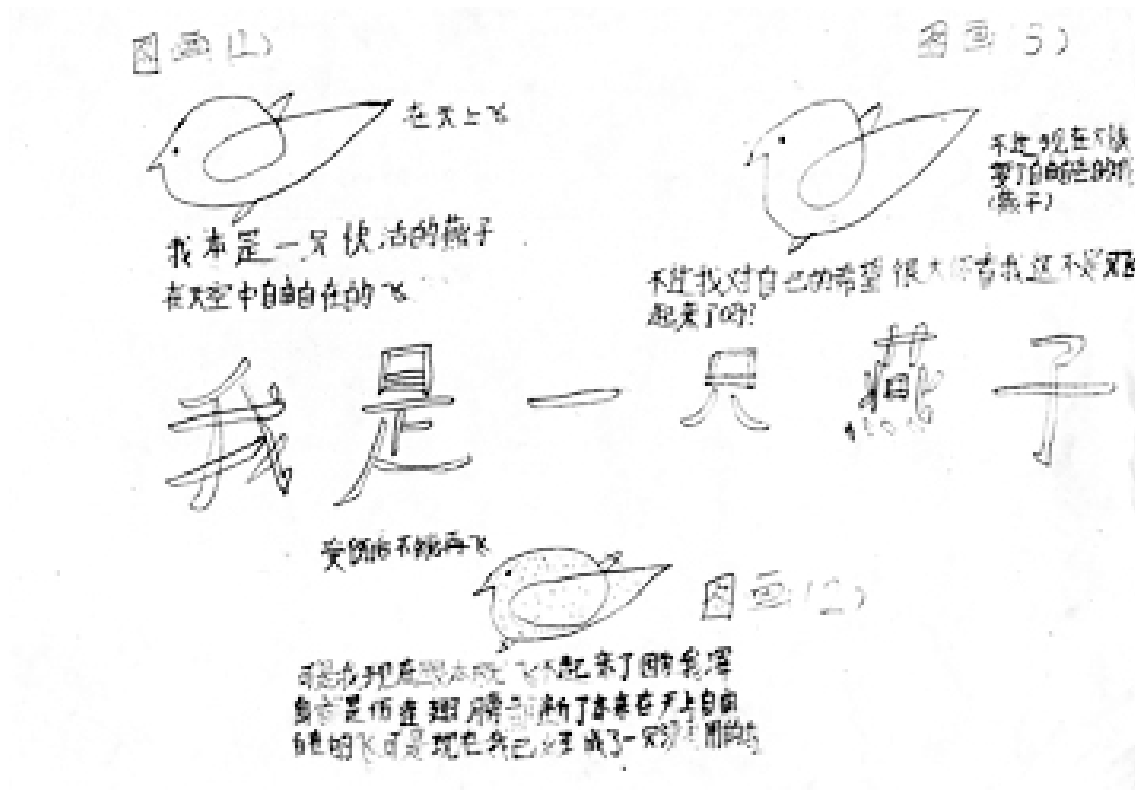 图画(1)
在天上飞
我本是一只快活的燕子
在天空中自由自在的飞
图画(3)
不过现在又快
要了自由自在的
(燕子)
不过我对自己的希望很大你看我这不是又飞
起来了吗?
我是一只燕子
受伤后不能再飞
图画(2)
可是我现在根本飞不起来了因为我浑
身是伤连翅膀都断了本来在天上自由
自在的飞可是现在我已经变成了一只没用的